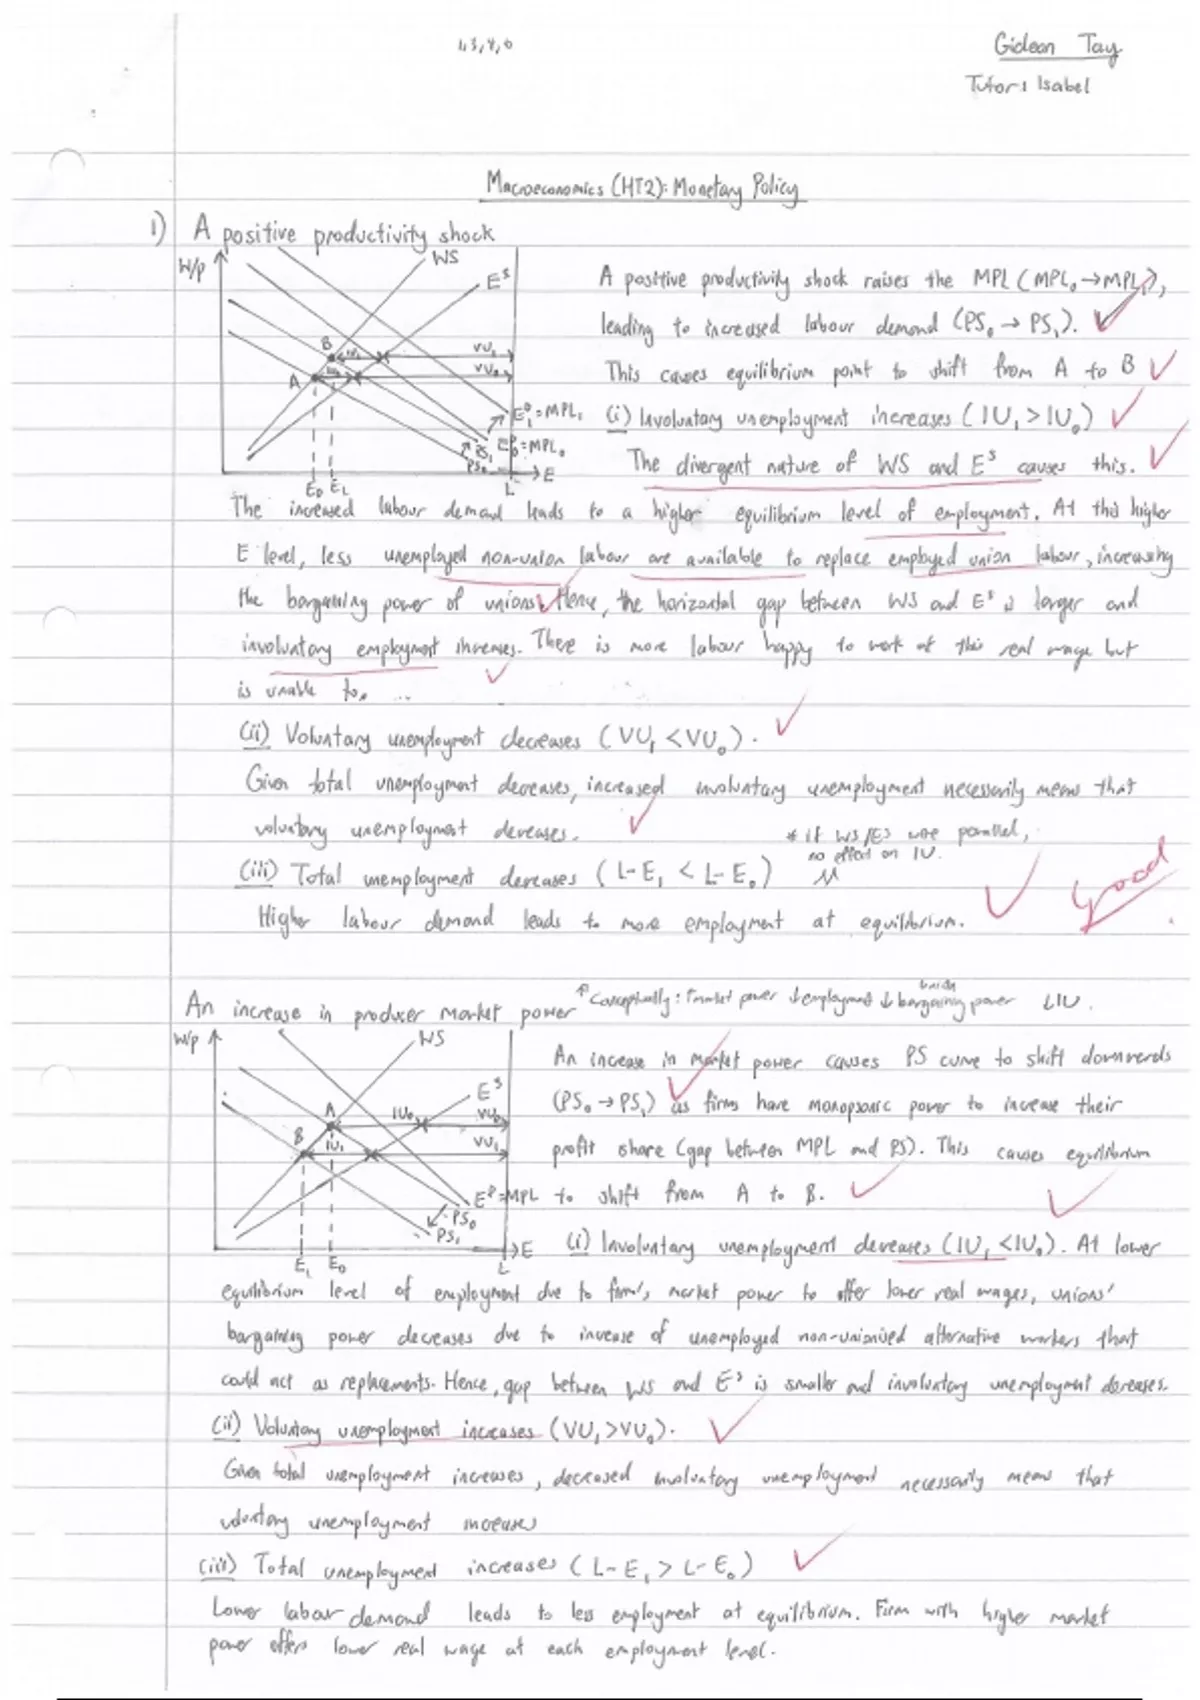 1,3,4,6
Gideon Tay
Tutor: Isabel
Macroeconomics (HT2): Monetary Policy
1) A positive productivity shock
W/p
WS
E^S
B
IU₁
VU₁
A
IU₀
VU₀
E₁^D = MPL₁
E₀^D = MPL₀
PS₁
PS₀
E₀ E₁
L
E
A positive productivity shock raises the MPL (MPL₀ → MPL₁),
leading to increased labour demand (PS₀ → PS₁).
This causes equilibrium point to shift from A to B
(i) Involuntary unemployment increases (IU₁ > IU₀)
The divergent nature of WS and E^S causes this.
The increased labour demand leads to a higher equilibrium level of employment. At this higher
E level, less unemployed non-union labour are available to replace employed union labour, increasing
the bargaining power of unions. Hence, the horizontal gap between WS and E^S is larger and
involuntary employment increases. There is more labour happy to work at this real wage but
is unable to.
(ii) Voluntary unemployment decreases (VU₁ < VU₀).
Given total unemployment decreases, increased involuntary unemployment necessarily means that
voluntary unemployment decreases.
* if WS/ES were parallel,
no effect on IU.
(iii) Total unemployment decreases (L-E₁ < L-E₀)
Good
Higher labour demand leads to more employment at equilibrium.
An increase in producer market power
↑ Conceptually: ↑market power ↓employment ↓bargaining power ↓IU.
W/p
WS
E^S
A
IU₀
VU₀
B
IU₁
VU₁
E^D = MPL
PS₀
PS₁
E₁ E₀
L
E
An increase in market power causes PS curve to shift downwards
(PS₀ → PS₁) as firms have monopsonic power to increase their
profit share (gap between MPL and PS). This causes equilibrium
to shift from A to B.
(i) Involuntary unemployment decreases (IU₁ < IU₀). At lower
equilibrium level of employment due to firm's market power to offer lower real wages, unions'
bargaining power decreases due to increase of unemployed non-unionised alternative workers that
could act as replacements. Hence, gap between WS and E^S is smaller and involuntary unemployment decreases.
(ii) Voluntary unemployment increases (VU₁ > VU₀).
Given total unemployment increases, decreased involuntary unemployment necessarily means that
voluntary unemployment increases
(iii) Total unemployment increases (L-E₁ > L-E₀)
Lower labour demand leads to less employment at equilibrium. Firm with higher market
power offers lower real wage at each employment level.